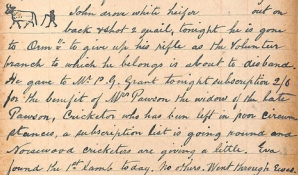 John drove white heifer out on
back & shot 2 quail, tonight he is gone
to Orm to give up his rifle as the Volunteer
branch to which he belongs is about to disband.
He gave to Mr P. G. Grant tonight subscription 2/6
for the benefit of Mrs Pawson the widow of the late
Pawson, Cricketer who has been left in poor circum
stances, a subscription list is going round and
Norsewood cricketers are giving a little. Eva
found the 1st lamb today. No others. Went through Ewes.